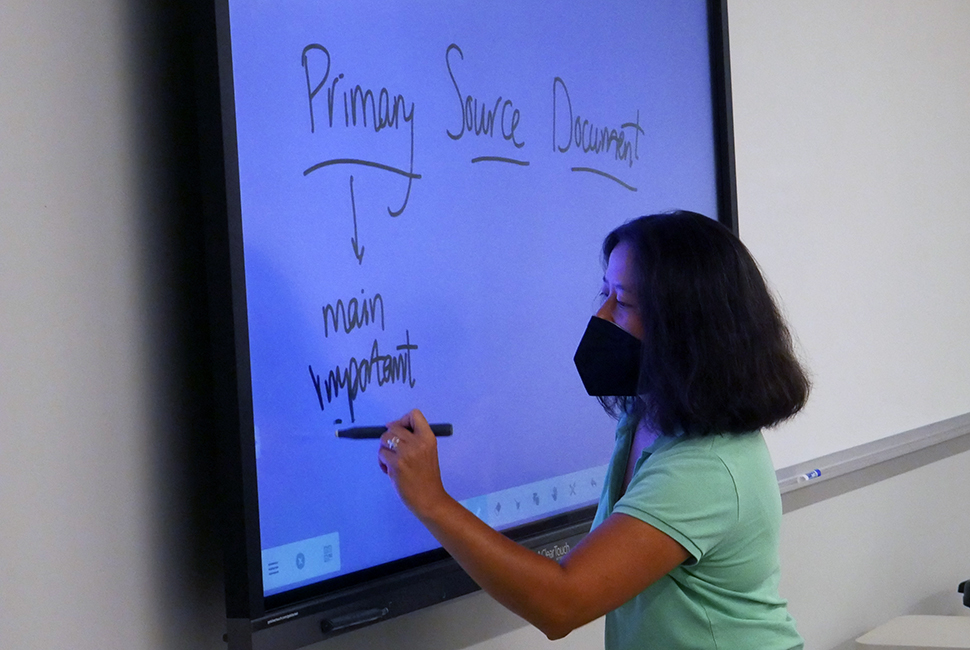 Primary Source Document
main
important
ClearTouch